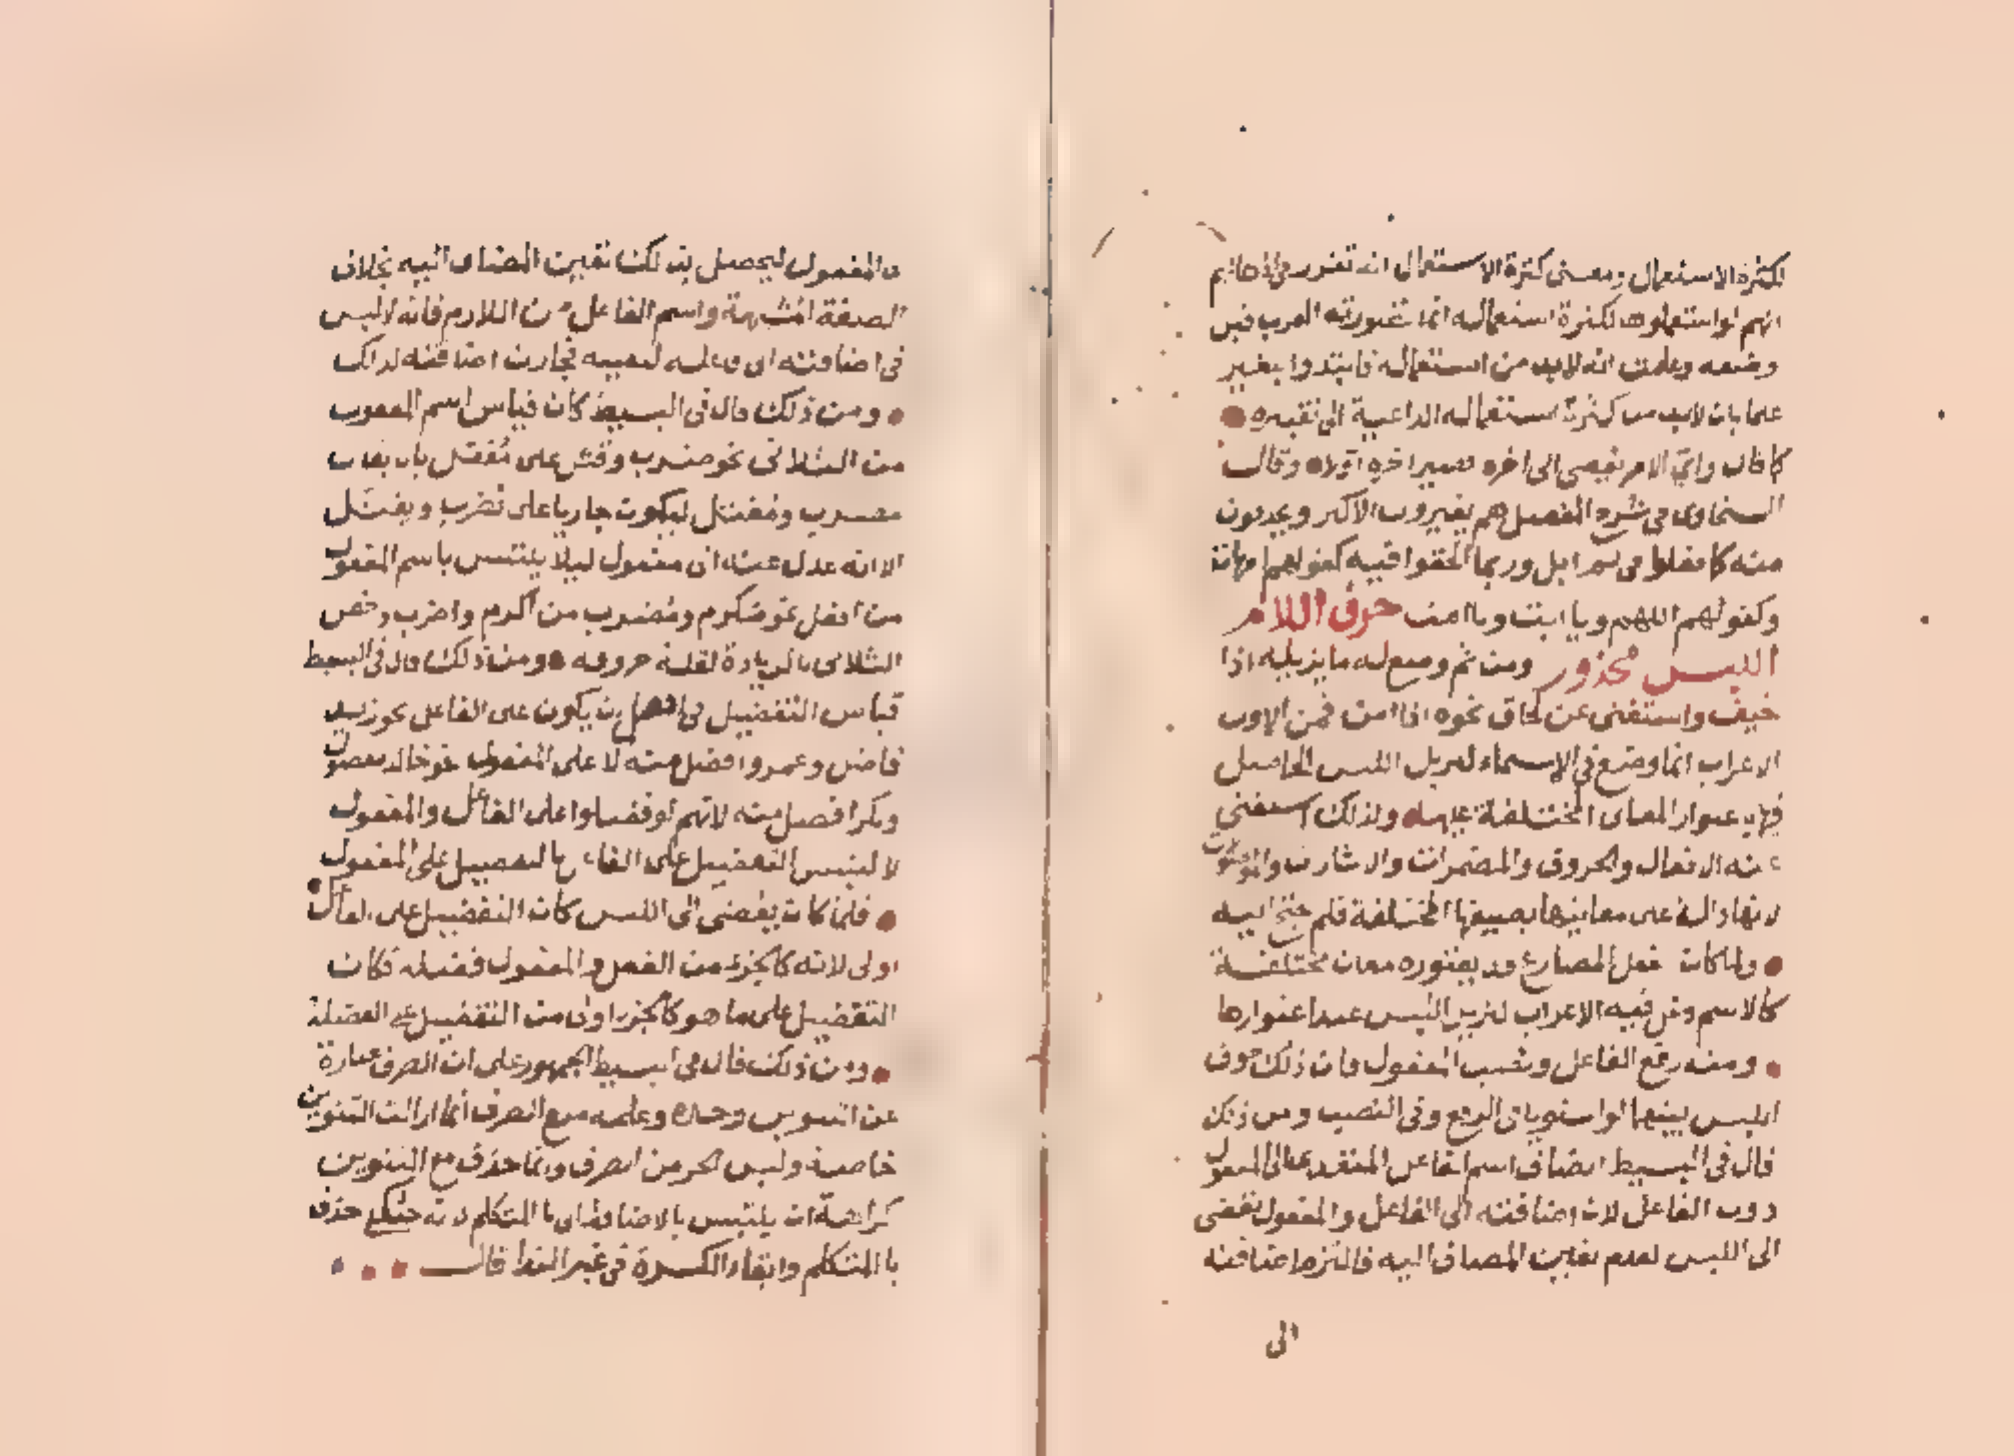 لكثرة الاستعمال ومعنى كثرة الاستعمال انه تقرر في اذهانهم
انهم لو استعملوه لكثرة استعماله انما تصورته العرب قبل
وضعه وعلمت انه لابد من استعماله فابتدوا بغير
علما بان لابد من كثرة استعماله الداعية الى تغييره
كما قال راي الامر يفضي الى اخره فصير اخره اولاه وقال
السخاوي في شرح المفصل هم يغيرون الاكثر ويحذفون
منه كما فعلوا في لم ابل وربما الحقوا فيه كقولهم امهات
وكقولهم اللهم ويا ابت ويا امت حرف اللام
اللبس محذور ومن ثم وضع له ما يزيله اذا
خيف واستغنى عن لحاق نحوه اذا امن فمن الاول
الاعراب انما وضع في الاسماء ليزيل اللبس الحاصل
فيها باعتوار المعاني المختلفة عليها ولذلك استغنى
عنه الافعال والحروف والمضمرات والاشارات والموصولات
لانها دالة على معانيها بصيغها المختلفة فلم يحتج اليه
ولما كان فعل المضارع قد يعتوره معان مختلفة
كالاسم دخل فيه الاعراب ليزيل اللبس عند اعتوارها
ومنه رفع الفاعل ونصب المفعول فان ذلك خوف
اللبس بينهما لو استويا في الرفع وفي النصب ومن ذلك
قال في البسيط يضاف اسم الفاعل المتعدي الى المفعول
دون الفاعل لان اضافته الى الفاعل والمفعول تفضي
الى اللبس لعدم تعيين المضاف اليه فالتزم اضافته
الى
المفعول ليحصل بذلك تعيين المضاف اليه بخلاف
الصفة المشبهة واسم الفاعل من اللازم فانه لا لبس
في اضافته الى فاعله لتعيينه فجازت اضافته لذلك
ومن ذلك قال في البسيط كان قياس اسم المفعول
من الثلاثي نحو ضرب وقتل على مفعل بان يقال
مضرب ومقتل ليكون جاريا على يضرب ويقتل
الا انه عدل عنه الى مفعول ليلا يلتبس باسم المفعول
من افعل نحو مكرم ومضرب من اكرم واضرب وخص
الثلاثي بالزيادة لقلة حروفه ومن ذلك قال في البسيط
قياس التفضيل في افعل ان يكون على الفاعل نحو زيد
فاضل وعمرو افضل منه لا على المفعول نحو خالد مفضول
وبكر افضل منه لانهم لو فضلوا على الفاعل والمفعول
لالتبس التفضيل على الفاعل بالتفضيل على المفعول
فلما كان يفضي الى اللبس كان التفضيل على الفاعل
اولى لانه كالجزء من الفعل والمفعول فضلة فكان
التفضيل على ما هو كالجزء اولى من التفضيل على الفضلة
ومن ذلك قال في البسيط الجمهور على ان الصرف عبارة
عن التنوين وحده وعلة منع الصرف انما ازالت التنوين
خاصة وليس الجر من الصرف وانما حذف مع التنوين
كراهة ان يلتبس بالاضافة الى يا المتكلم لانه حذف
يا المتكلم وابقاء الكسرة في غير الندا قال